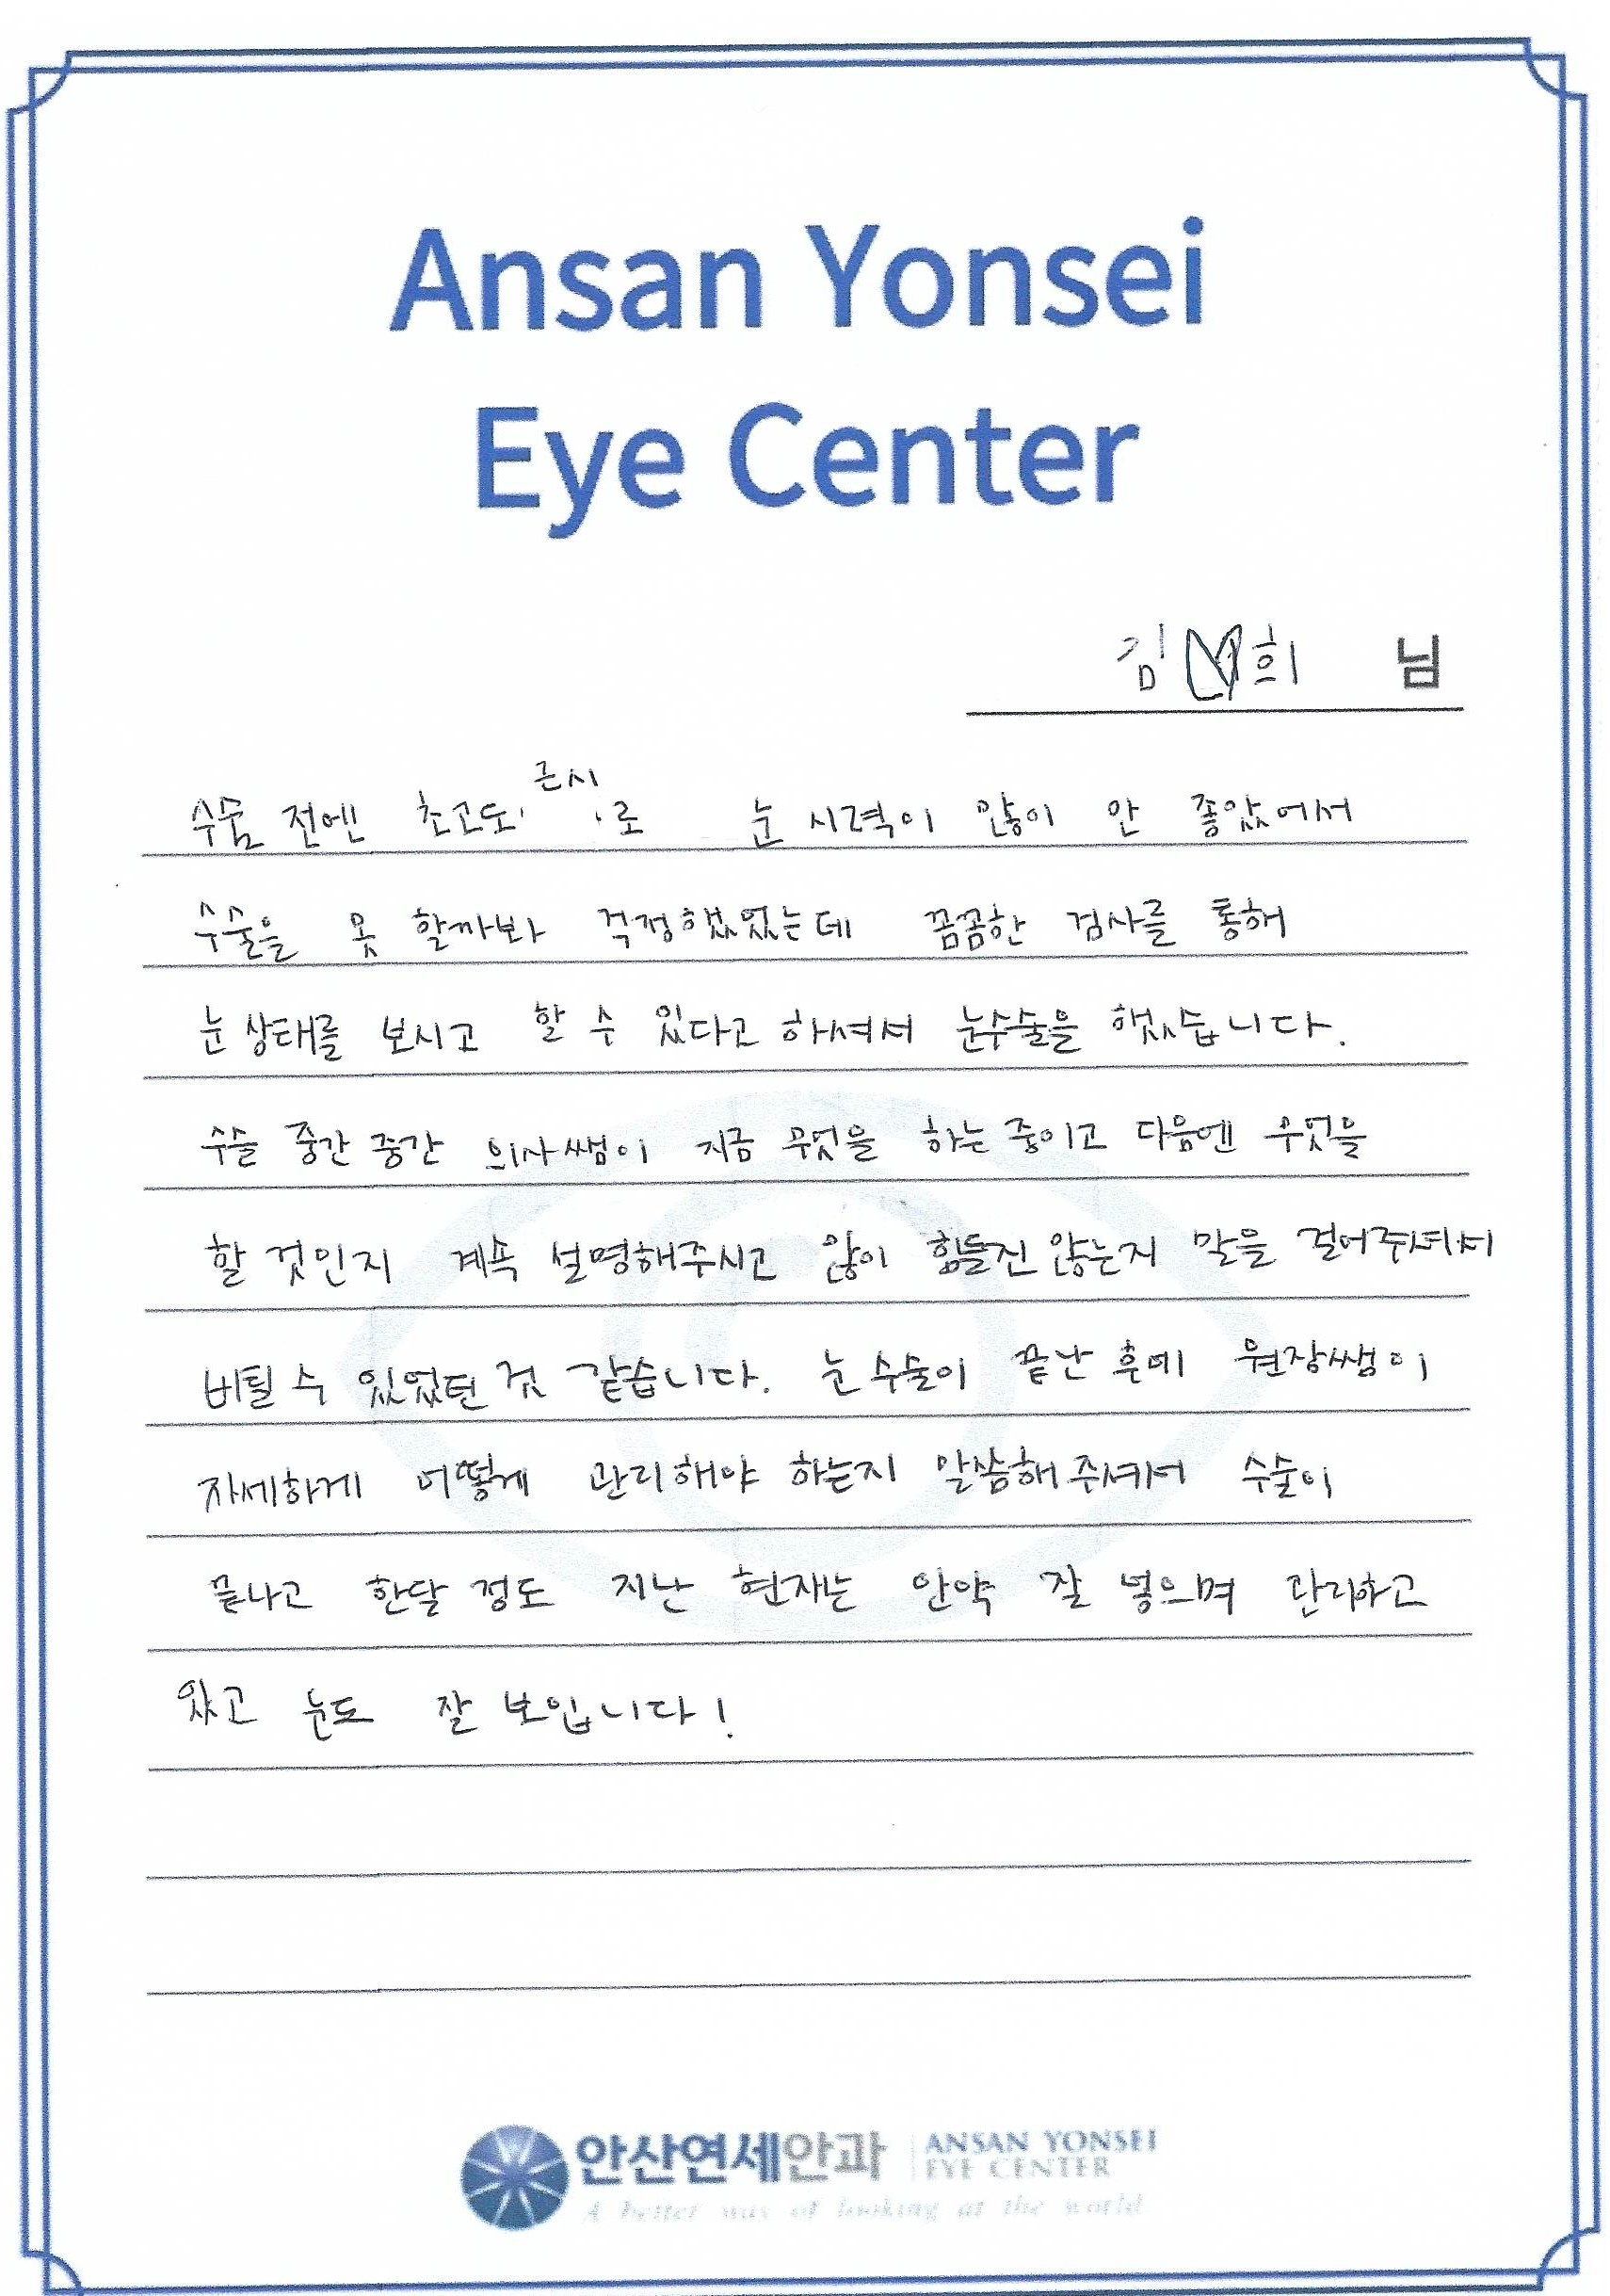 Ansan Yonsei
Eye Center
김 희 님
수술 전엔 초고도 근시로 눈 시력이 많이 안 좋았어서
수술을 못 할까봐 걱정했었는데 꼼꼼한 검사를 통해
눈 상태를 보시고 할 수 있다고 하셔서 눈수술을 했습니다.
수술 중간 중간 의사쌤이 지금 무엇을 하는 중이고 다음엔 무엇을
할 것인지 계속 설명해주시고 많이 힘들진 않는지 말을 걸어주셔서
버틸 수 있었던 것 같습니다. 눈 수술이 끝난 후에 원장쌤이
자세하게 어떻게 관리해야 하는지 말씀해주셔서 수술이
끝나고 한달 정도 지난 현재는 안약 잘 넣으며 관리하고
있고 눈도 잘 보입니다!
안산연세안과 ANSAN YONSEI
EYE CENTER
A better way of looking at the world